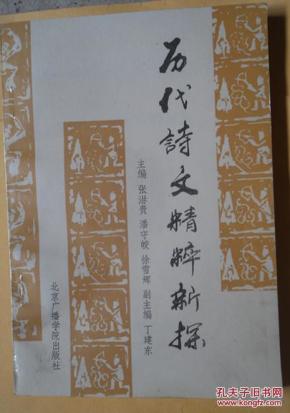 历代詩文精粹新探
主编 张港贵 潘守皎 徐雪辉 副主编 丁建东
北京广播学院出版社
孔夫子旧书网